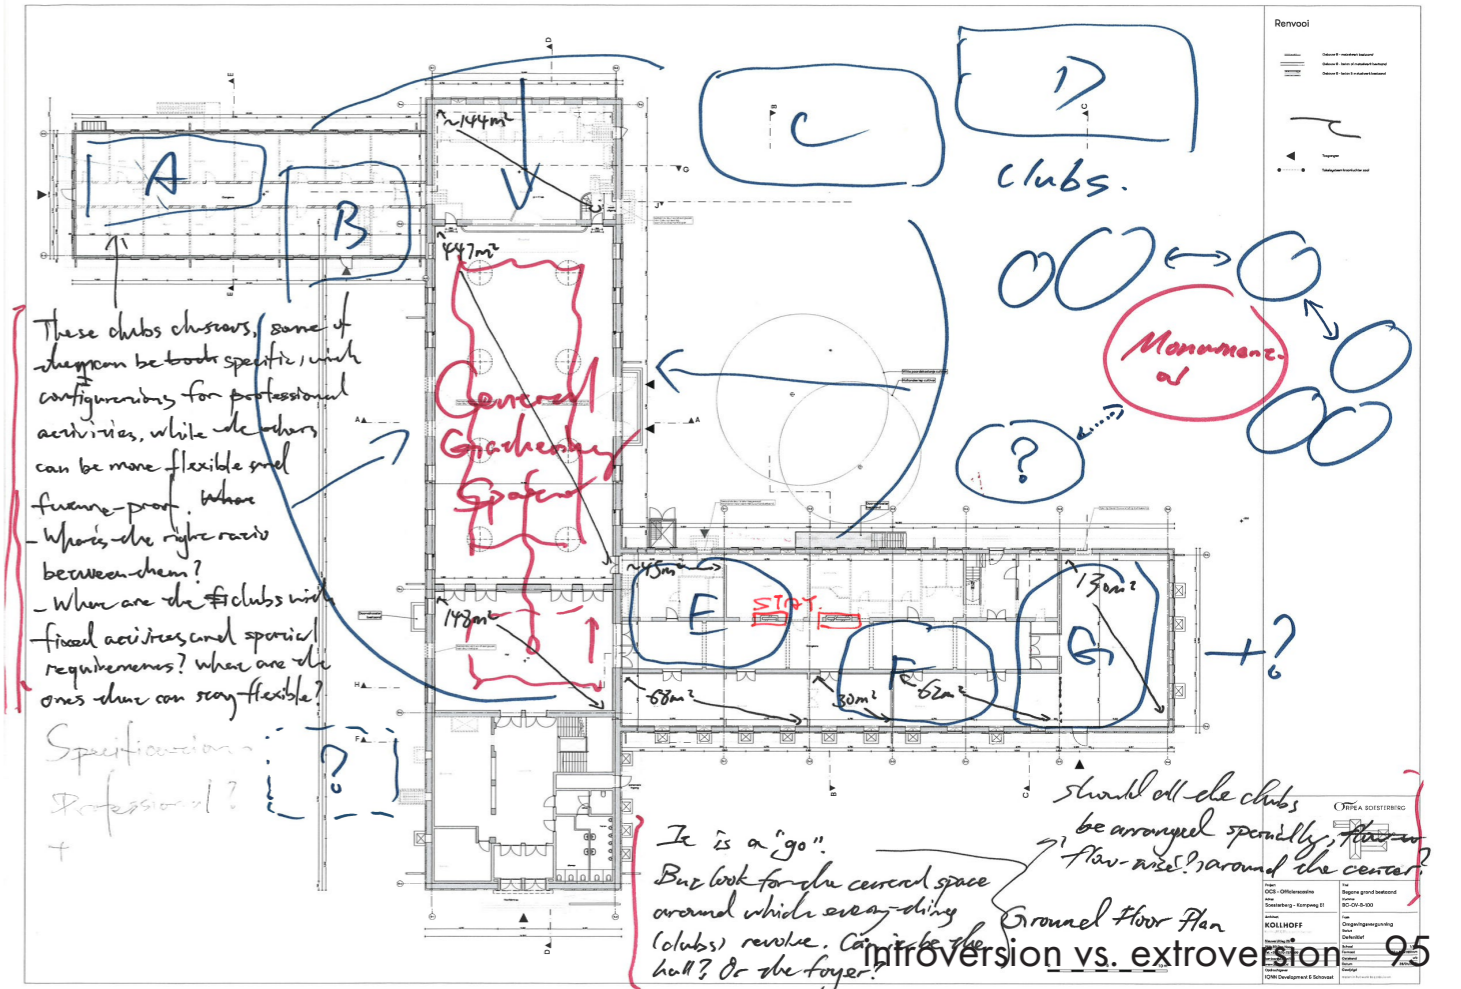 Renvooi
D
C
~144m²
clubs.
A
B
447m²
General
Gathering
Space
Monument
?
These clubs clusters, some of
them can be both specific, with
configurations for professional
activities, while the others
can be more flexible and
future-proof. What
- What's the right ratio
between them?
- What are the clubs with
fixed activities and spatial
requirements? What are the
ones that can stay flexible?
Specification
Professional?
+
?
148m²
~45m²
E
START.
F
G
130m²
68m²
30m²
62m²
+?
It is a "go".
But look for the central space
around which everything
(clubs) revolve. Can it be the
hall? Or the foyer?
Should all the clubs
be arranged spatially,
flow-wise?, around the center?
Ground Floor Plan
ORPEA SOESTERBERG
OCS - Officierscasino
Soesterberg - Kampweg 51
Begane grond bestaand
BC-OV-B-100
KOLLHOFF
Omgevingsvergunning
Definitief
IGNN Development & Schovast
introversion vs. extroversion 95